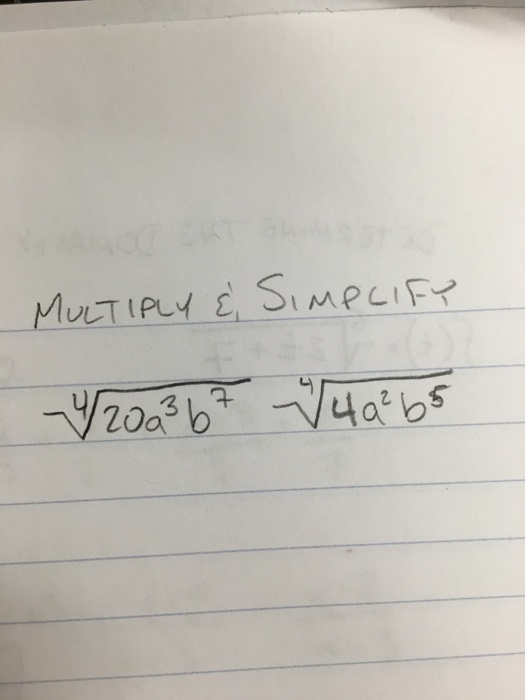 MULTIPLY & SIMPLIFY
∜20a³b⁷ ∜4a²b⁵